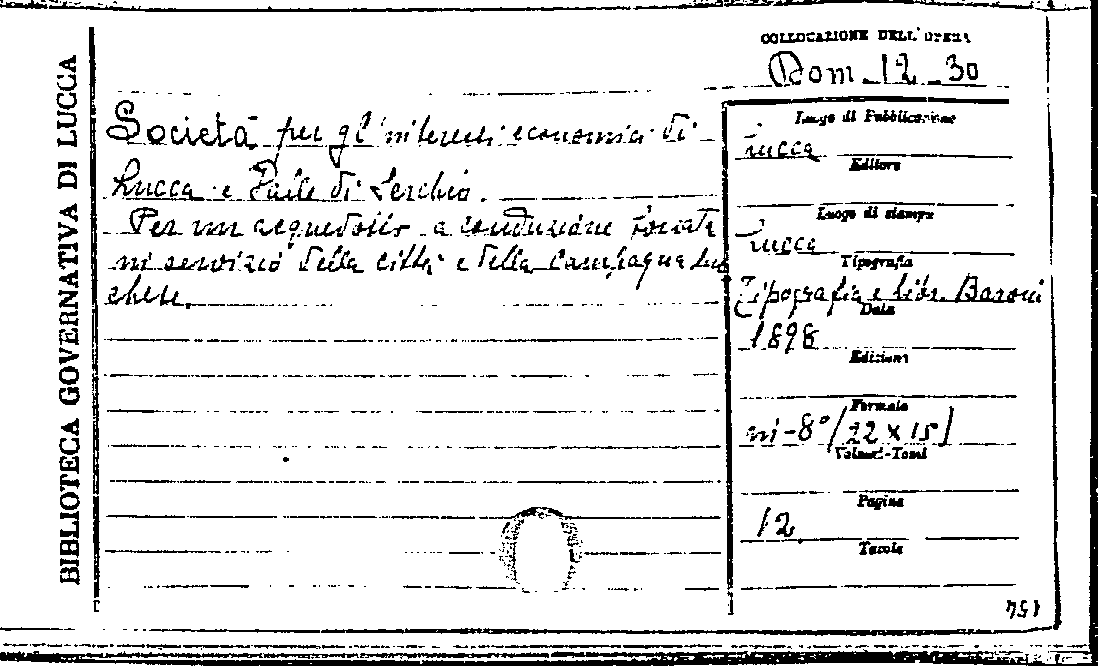 BIBLIOTECA GOVERNATIVA DI LUCCA
COLLOCAZIONE DELL'OPERA
Dom. 12 - 30
Società per gl'interessi economici di
Lucca e Valle di Serchio.
Per un acquedotto a conduzione forzata
in servizio della città e della campagna luc
chese.
Luogo di Pubblicazione
Lucca
Editore
Luogo di stampa
Lucca
Tipografia
Tipografia e libr. Baroni
Data
1898
Edizione
Formato
in-8° (22 x 15)
Volumi-Tomi
Pagine
12.
Tavole
154